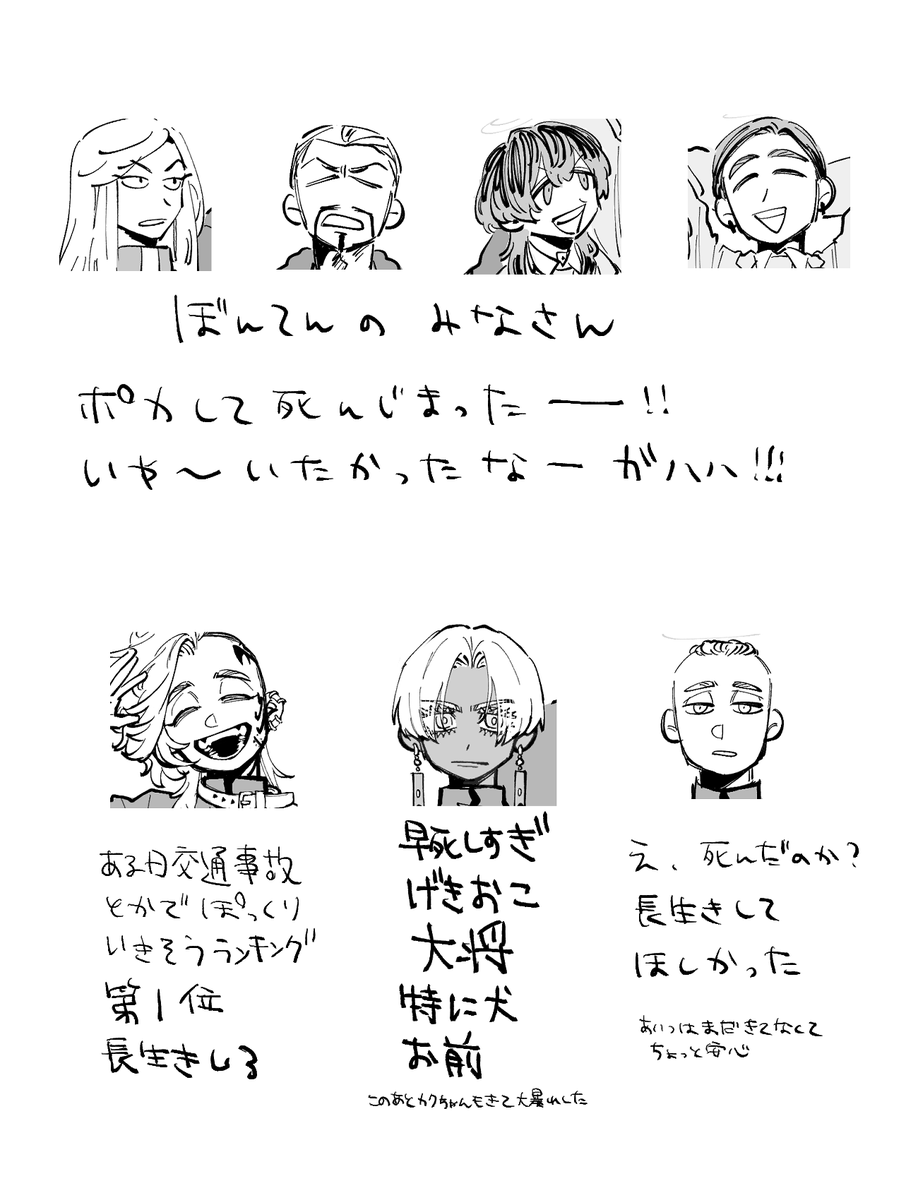 ぼんてんの みなさん
ポカして死んじまったー!!
いや〜いたかったなーガハハ!!!
ある日交通事故
とかでぽっくり
いきそうランキング
第1位
長生きしろ
早死しすぎ
げきおこ
大将
特に犬
お前
このあとカクちゃんもきて大暴れした
え、死んだのか?
長生きして
ほしかった
あいつはまだきてなくて
ちょっと安心